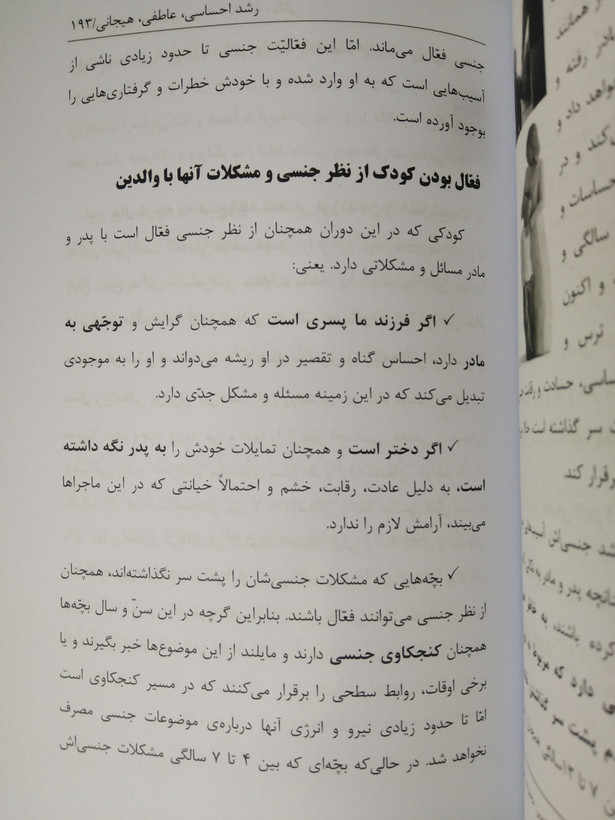 رشد احساسی، عاطفی، هیجانی/۱۹۳
جنسی فعّال می‌ماند. امّا این فعالیّت جنسی تا حدود زیادی ناشی از
آسیب‌هایی است که به او وارد شده و با خودش خطرات و گرفتاری‌هایی را
بوجود آورده است.
فعّال بودن کودک از نظر جنسی و مشکلات آنها با والدین
کودکی که در این دوران همچنان از نظر جنسی فعّال است با پدر و
مادر مسائل و مشکلاتی دارد. یعنی:
✓ اگر فرزند ما پسری است که همچنان گرایش و توجّهی به
مادر دارد، احساس گناه و تقصیر در او ریشه می‌دواند و او را به موجودی
تبدیل می‌کند که در این زمینه مسئله و مشکل جدّی دارد.
✓ اگر دختر است و همچنان تمایلات خودش را به پدر نگه داشته
است، به دلیل عادت، رقابت، خشم و احتمالاً خیانتی که در این ماجراها
می‌بیند، آرامش لازم را ندارد.
✓ بچّه‌هایی که مشکلات جنسی‌شان را پشت سر نگذاشته‌اند، همچنان
از نظر جنسی می‌توانند فعّال باشند. بنابراین گرچه در این سنّ و سال بچّه‌ها
همچنان کنجکاوی جنسی دارند و مایلند از این موضوع‌ها خبر بگیرند و یا
برخی اوقات، روابط سطحی را برقرار می‌کنند که در مسیر کنجکاوی است
امّا تا حدود زیادی نیرو و انرژی آنها درباره‌ی موضوعات جنسی مصرف
نخواهد شد. در حالی‌که بچّه‌ای که بین ۴ تا ۷ سالگی مشکلات جنسی‌اش
همانند
رفته و
خواهد داد و
و در
احساسات و
سالگی و
و اکنون
ترس و
حسادت و رقابت
سر گذاشته است
قرار کند